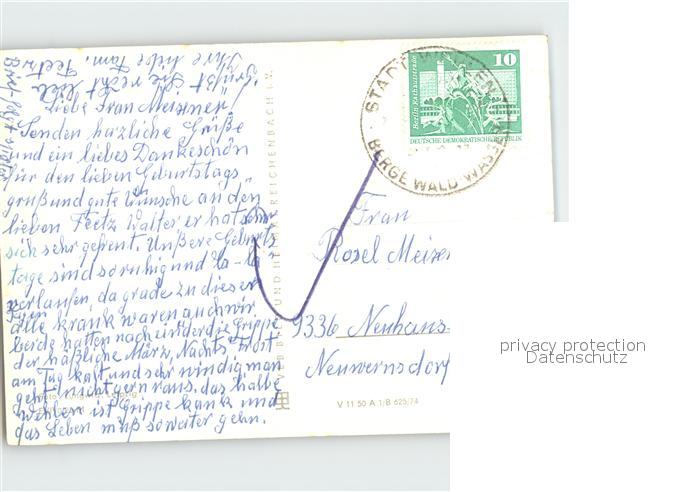 Liebe Frau Meissner
Senden härzliche Grüße
und ein liebes Dankeschön
für den lieben Geburtstags
gruß und gute Wünsche an den
lieben Feetz Walter er hat sehr
sich sehr gefreut. Unßere Geburts
tage sind so ruhig und la-la
verlaufen, da grade zu dieser
Zeit
alle krank waren auch wir
beide hatten nach einander die Grippe
der häßliche März, Nachts Frost
am Tag kalt und sehr windig man
geht nicht gern raus. das halbe
ist Grippe krank und
das Leben muß so weiter gehn.
Es grüßt Sie recht lieb
Ihre liebe Fam. Feetz
VEB BILD UND HEIMAT REICHENBACH i.V.
V 11 50 A 1/B 625/74
STADT
BERGE WALD WASSER
10
Berlin Rathausstraße
DEUTSCHE DEMOKRATISCHE REPUBLIK
Frau
Rosel Meissn
9336 Neuhaus-
Neuwernsdorf
privacy protection
Datenschutz